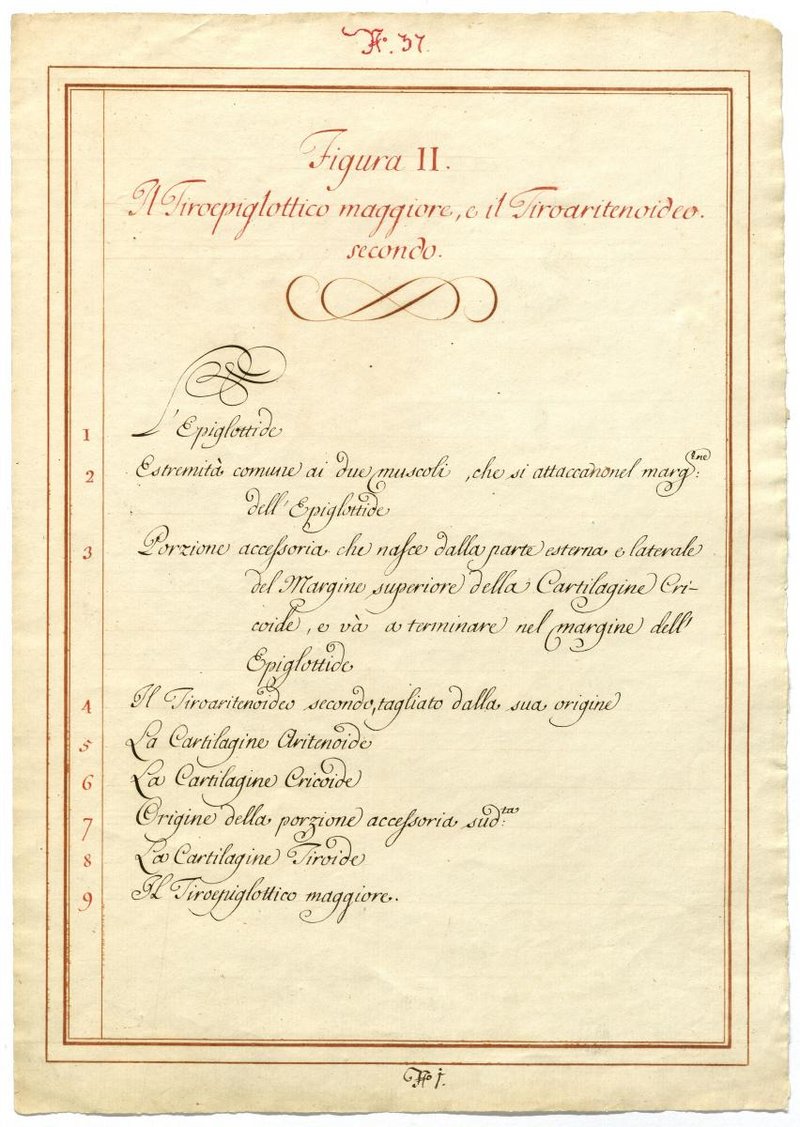 No. 37.
Figura II.
Il Tiroepiglottico maggiore, e il Tiroaritenoideo.
secondo.
1 L'Epiglottide
2 Estremità comune ai due muscoli, che si attaccano nel marg:ine
dell'Epiglottide
3 Porzione accessoria che nasce dalla parte esterna e laterale
del Margine superiore della Cartilagine Cri-
coide, e và a terminare nel margine dell'
Epiglottide
4 Il Tiroaritenoideo secondo, tagliato dalla sua origine
5 La Cartilagine Aritenoide
6 La Cartilagine Cricoide
7 Origine della porzione accessoria sud:ta
8 La Cartilagine Tiroide
9 Il Tiroepiglottico maggiore.
No j.